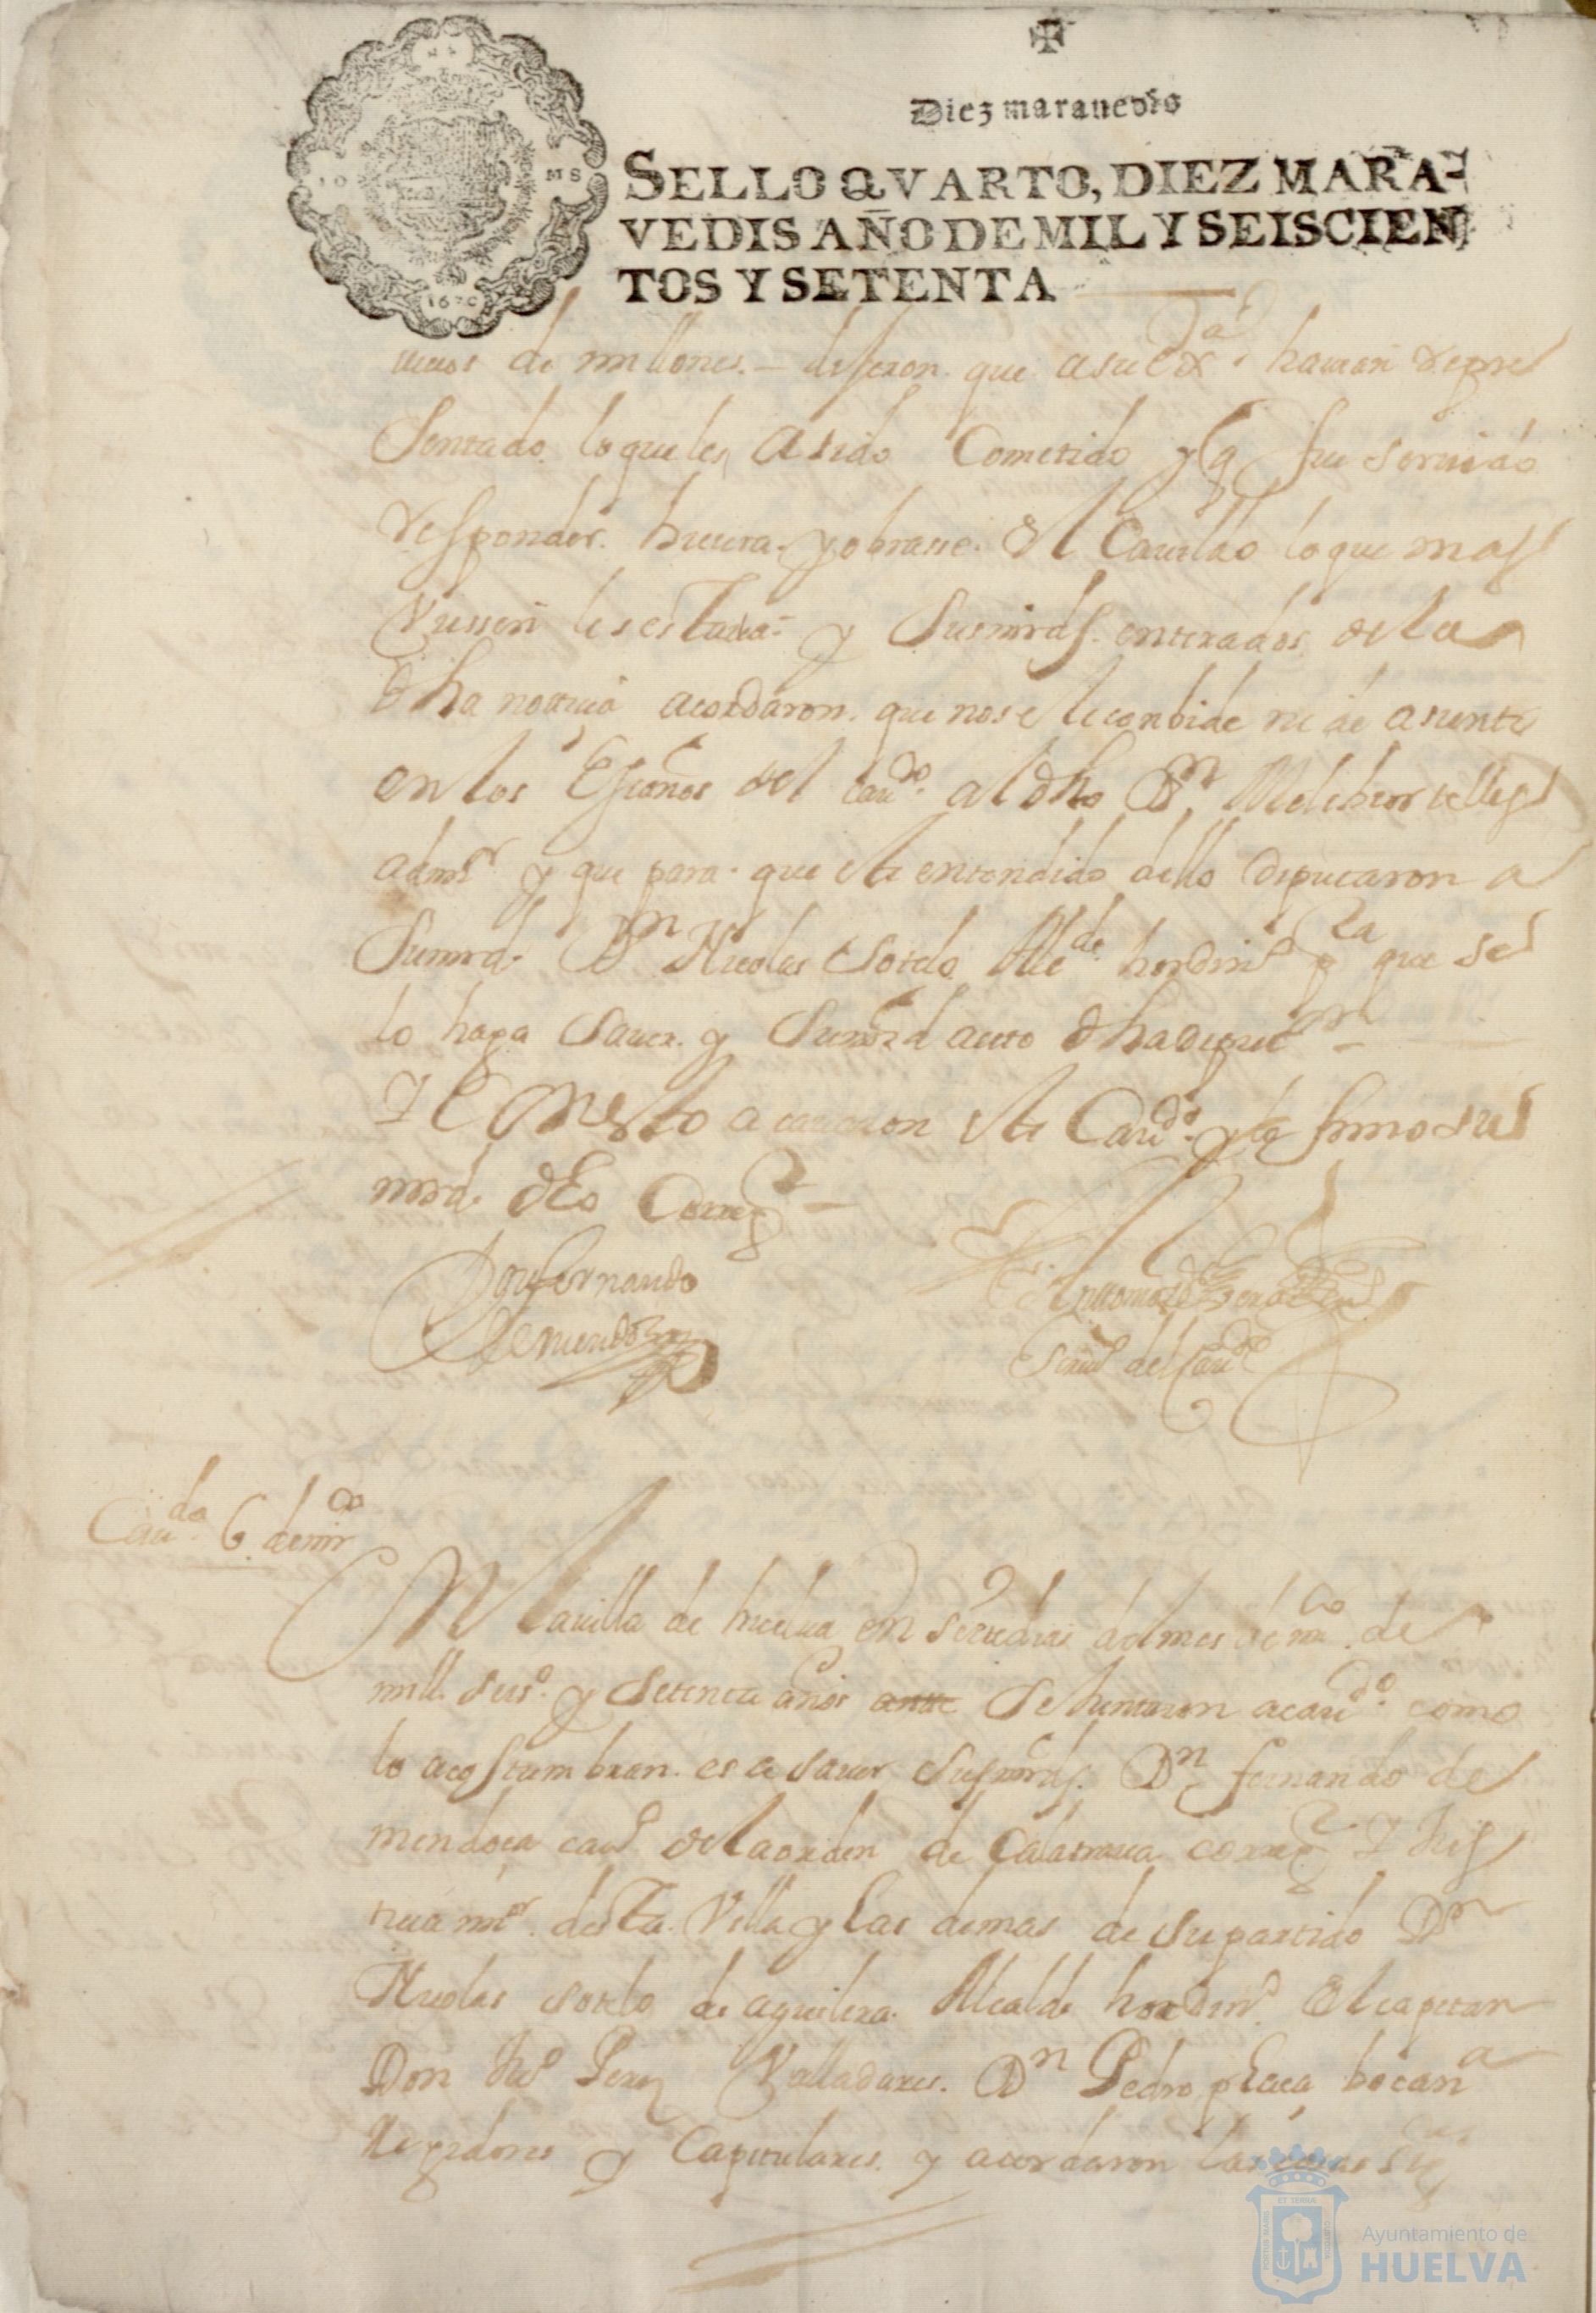 Diez maravedis
SELLO QVARTO, DIEZ MARA-
VEDIS AÑO DE MIL Y SEISCIEN
TOS Y SETENTA
1670
de millones. – dijeron que a su Exª. havian repre
sentado lo que les a sido Cometido y q fue seruido
responder. hiciera. y obrasse. el Cauildo lo que mas
Vien les estubiera y Susmrds. enterados de la
dha noticia acordaron. que no se le conbide ni de asiento
en los Escaños del caudo. al dho Dn. Melchor tellez
admor y que para. que este entendido dello diputaron a
Sumrd. Dn Nicolas Sotelo Alcde. hordinº pª que se
lo haga Sauer. y Sumrd aceto dha diputon –
Y Con esto acauaron este Caudo. y lo firmo su
mrd. del Corregr –
Don fernando
de mendoza
Antonio de
Scriuº del Caudo
Caudo. 6. de mço
En la uilla de huelua en seis dias del mes de mço. de
mill seisº. y Setenta años ante Se Juntaron a caudo. como
lo acostumbran. es a sauer Susmrds. Dn fernando de
mendoça cauº de la orden de Calatraua corregr Y Jus
ticia mor. desta Villa y las demas de su partido Dn
Nicolas sotelo de aguilera. Alcalde hordinº. El capitan
Don Juº Perez Valladares. Dn Pedro plaça bocanª
Regidores y Capitulares. y acordaron las cosas sigtes
Ayuntamiento de
HUELVA